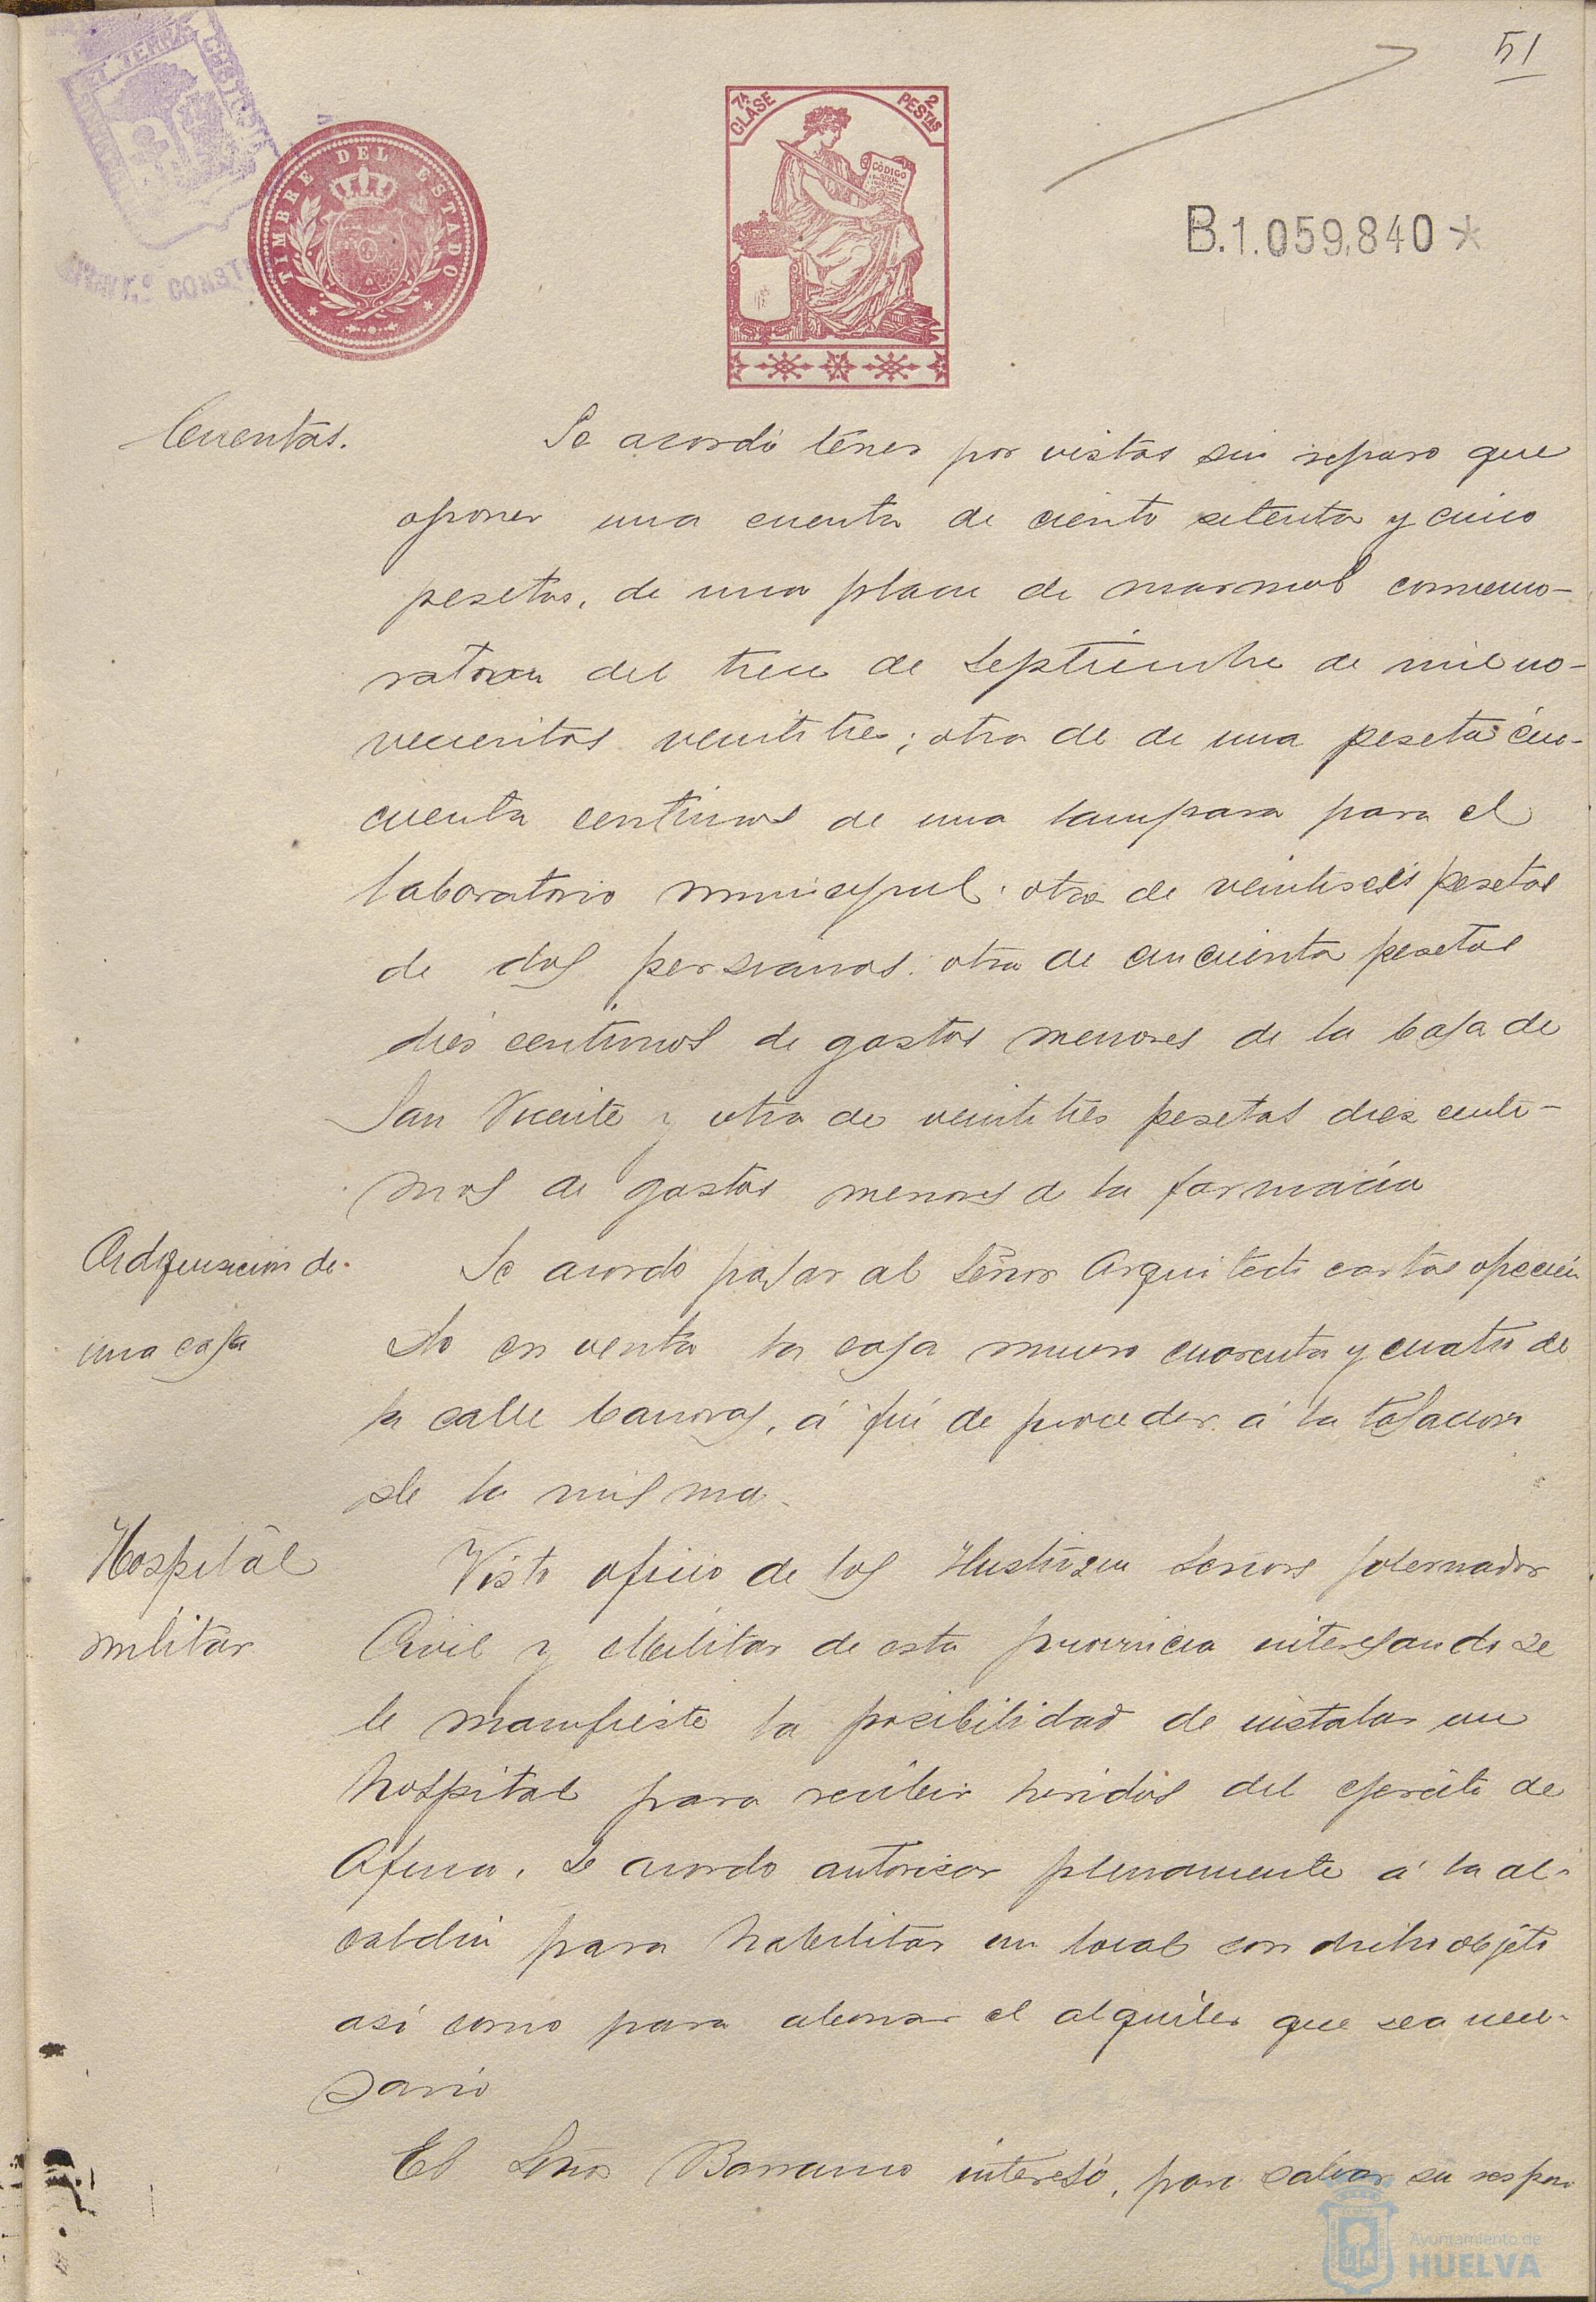 51
7ª CLASE
2 PESTAS
CÓDIGO
TIMBRE DEL ESTADO
B.1.059,840*
Cuentas.
Se acordó tener por vistas sin reparo que
oponer una cuenta de ciento setenta y cinco
pesetas, de una placa de marmol conmemo-
ratoria del trece de Septiembre de mil no-
vecientos veintitres; otra de de una peseta cin-
cuenta centimos de una lampara para el
laboratorio municipal: otra de veintiseis pesetas
de dos persianas: otra de cincuenta pesetas
dies centimos de gastos menores de la Casa de
San Vicente y otra de veintitres pesetas diez centi-
mos de gastos menores de la farmacia
Adquisicion de
una casa
Se acordo pasar al Señor Arquitecto cartas ofrecien
do en venta la casa numero cuarenta y cuatro de
la calle Canovas, á fin de proceder á la tasacion
de la misma.
Hospital
militar
Visto oficio de los Ilustrisimos Señores Gobernador
Civil y Militar de esta provincia interesandose
le manifieste la posibilidad de instalar un
hospital para recibir heridos del ejercito de
Africa, se acordo autorizar plenamente á la al-
caldia para habilitar un local con dicho objeto
así como para abonar el alquiler que sea nece-
sario
El Señor Barranco interesó, para salvar su respon
Ayuntamiento de
HUELVA